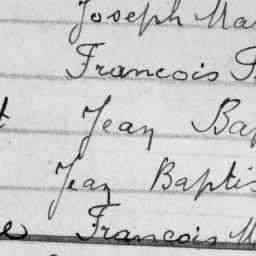 Joseph Ma
Francois
t Jean Bap
Jean Baptis
e Francois M